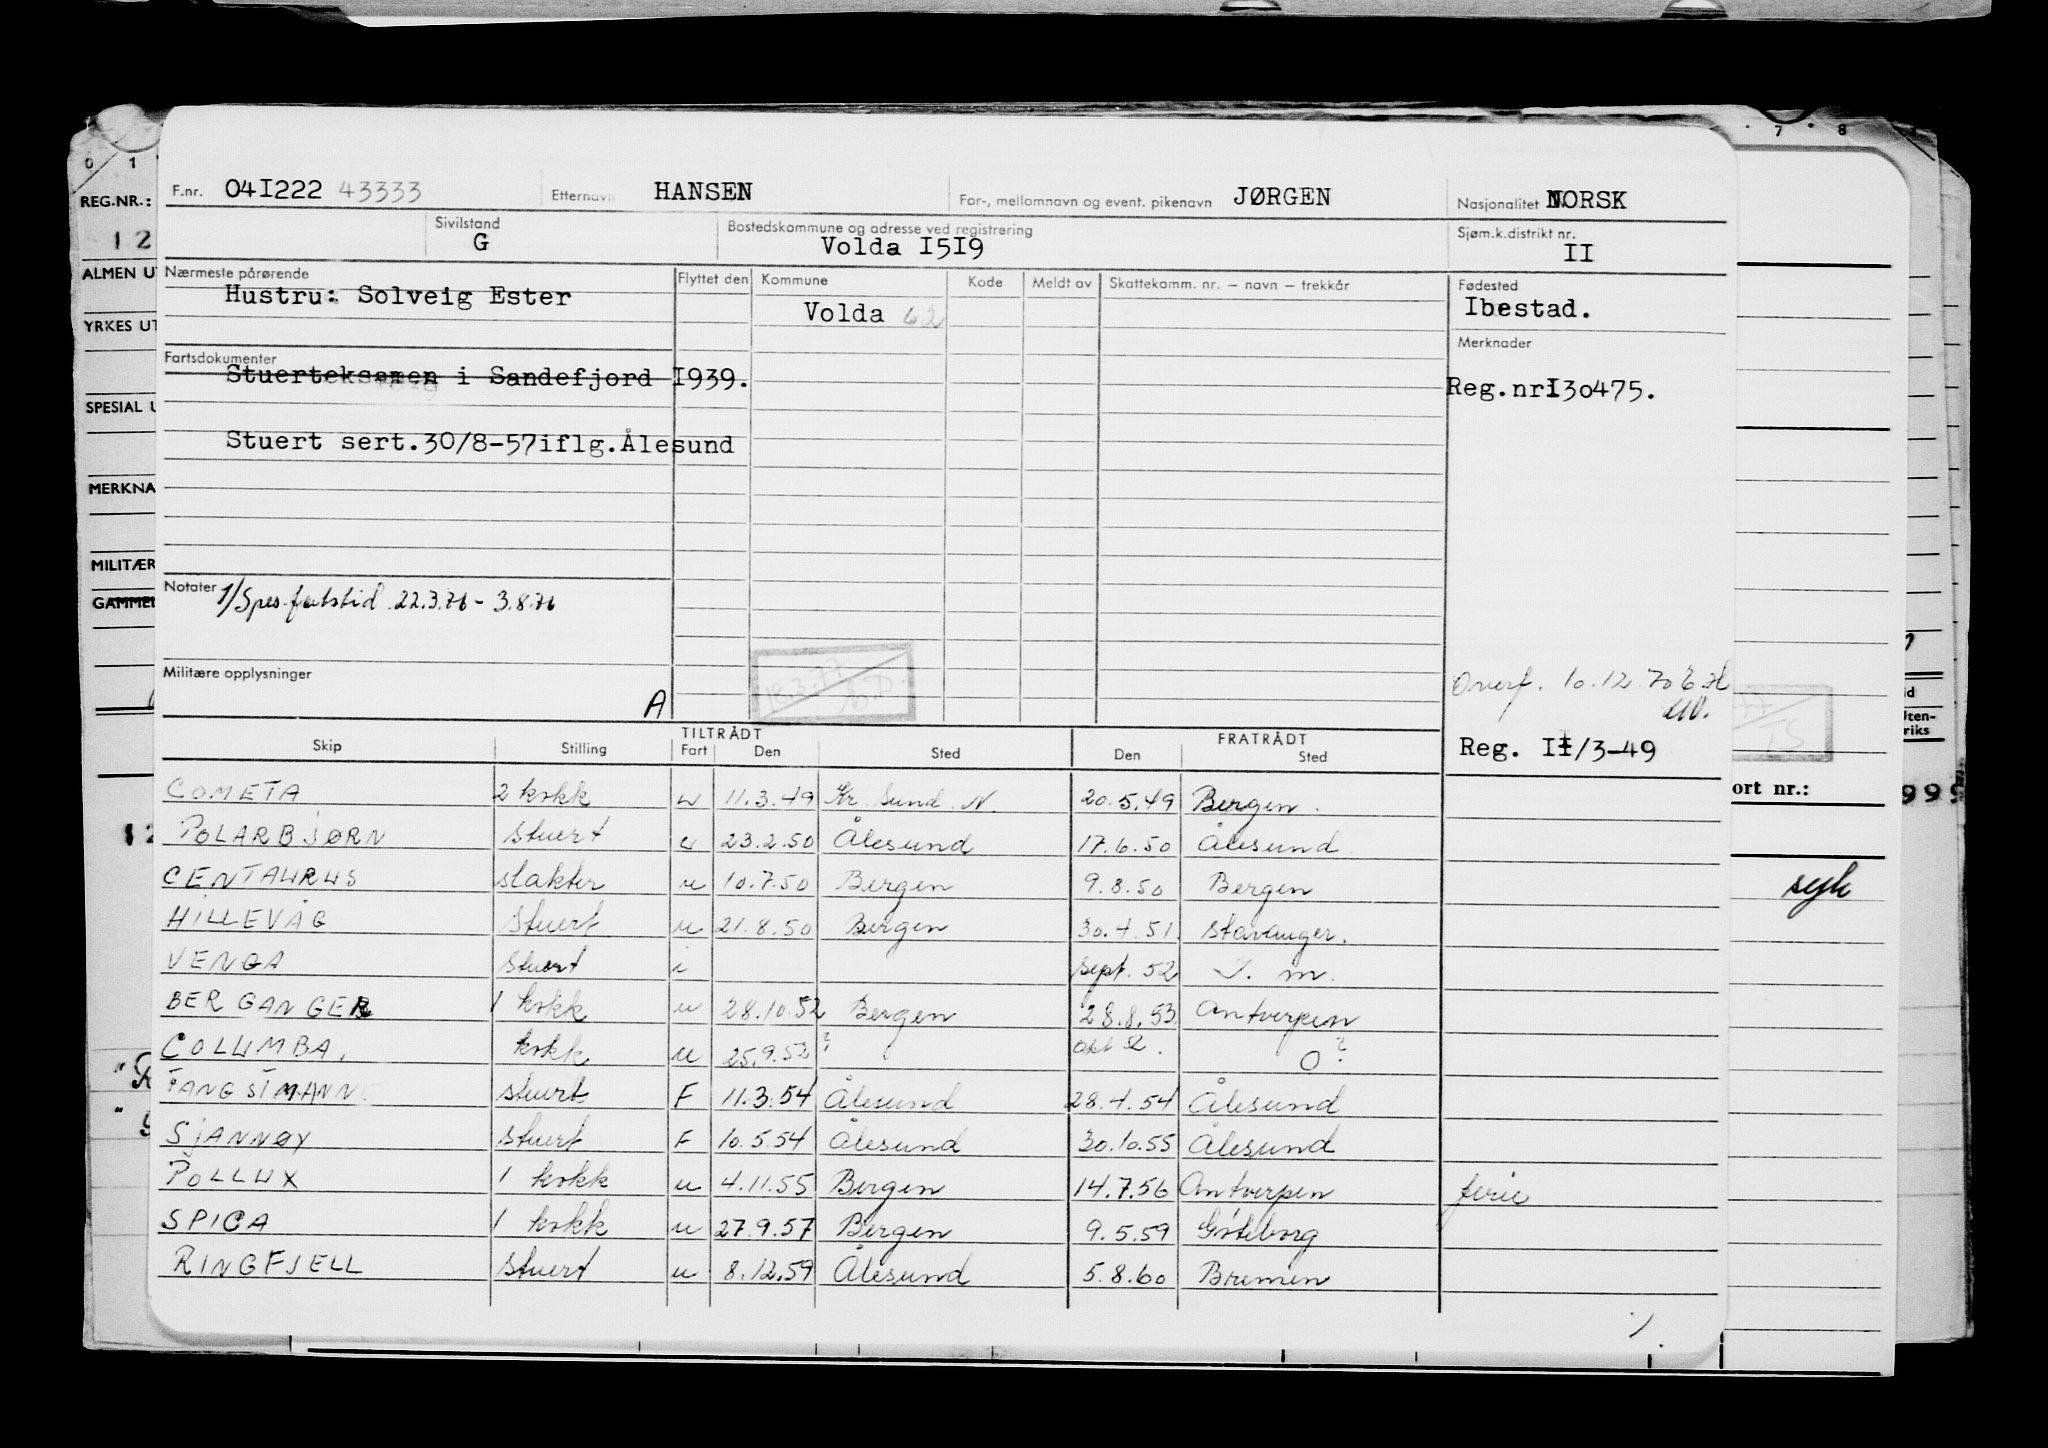 F.nr. 04I222 43333 Etternavn HANSEN For-, mellomnavn og event. pikenavn JØRGEN Nasjonalitet NORSK
Sivilstand G Bostedskommune og adresse ved registrering Volda I5I9 Sjøm.k.distrikt nr. II
Nærmeste pårørende Flyttet den Kommune Kode Meldt av Skattekomm. nr. – navn – trekkår Fødested
Hustru: Solveig Ester Volda 62 Ibestad.
Fartsdokumenter Merknader
Stuerteksamen i Sandefjord I939. Reg.nrI30475.
Stuert sert.30/8-57iflg.Ålesund
Notater 1/Spes.fartstid 22.3.76 - 3.8.76
Militære opplysninger A
18.3.77
Overf. 10.12.70
Reg. II/3-49
TILTRÅDT FRATRÅDT
Skip Stilling Fart Den Sted Den Sted
COMETA 2 kokk u 11.3.49 Kr. Sund. N. 20.5.49 Bergen.
POLARBJØRN stuert u 23.2.50 Ålesund 17.6.50 Ålesund
CENTAURUS slakter u 10.7.50 Bergen 9.8.50 Bergen
HILLEVÅG stuert u 21.8.50 Bergen 30.4.51 Stavanger.
VENGA stuert i sept. 52 I. m.
BERGANGER 1 kokk u 28.10.52 Bergen 28.8.53 Antverpen
COLUMBA. kokk u 25.9.52 ? okt 52. O ?
FANGSTMANN stuert F 11.3.54 Ålesund 28.4.54 Ålesund
SJANNØY stuert F 10.5.54 Ålesund 30.10.55 Ålesund
POLLUX 1 kokk u 4.11.55 Bergen 14.7.56 Antverpen ferie
SPICA 1 kokk u 27.9.57 Bergen 9.5.59 Göteborg
RINGFJELL stuert u 8.12.59 Ålesund 5.8.60 Bremen
1.
0 1
REG.NR.:
12
ALMEN UT
YRKES UT
SPESIAL U
MERKNA
MILITÆR
GAMMEL
12
7 8
id
Uten-
riks
ort nr.:
999
syk